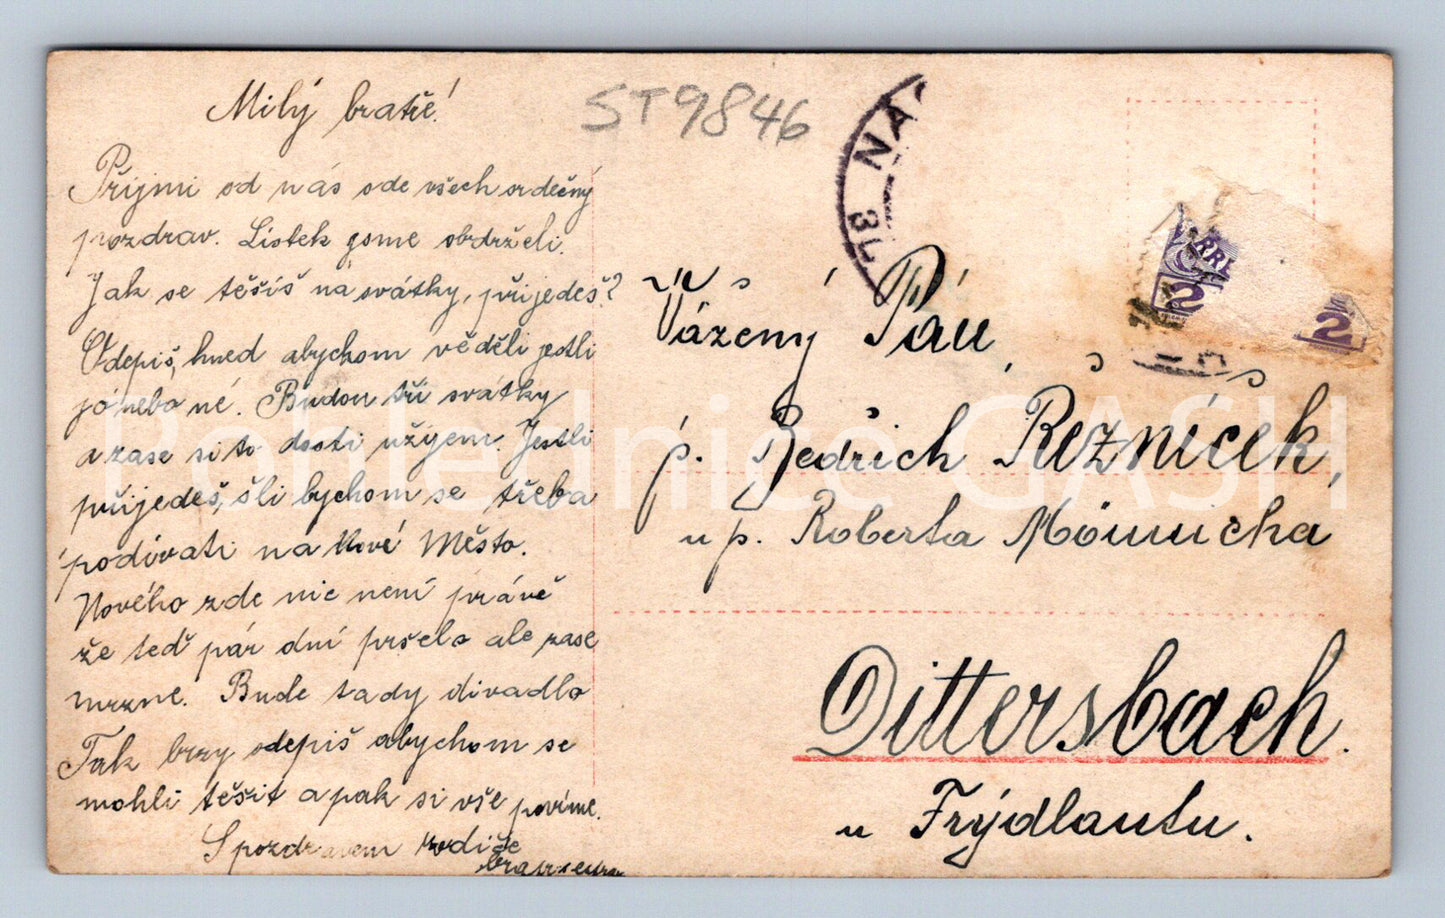 Milý bratře!
ST9846
Přijmi od nás ode všech srdečný
pozdrav. Lístek jsme obdrželi.
Jak se těšíš na svátky, přijedeš?
Odepiš, hned abychom věděli jestli
jo nebo né. Budou tři svátky
a zase si to dosti užijem. Jestli
přijedeš, šli bychom se třeba
podívati na Nové Město.
Nového zde nic není právě
že teď pár dní pršelo ale zase
mrzne. Bude tady divadlo
Tak brzy odepiš abychom se
mohli těšit a pak si vše povíme.
S pozdravem rodiče
NA
2
2
Vážený Pán
p. Bedřich Řezníček,
u p. Roberta
Dittersbach.
u Frýdlantu.
Pohlednice GASH